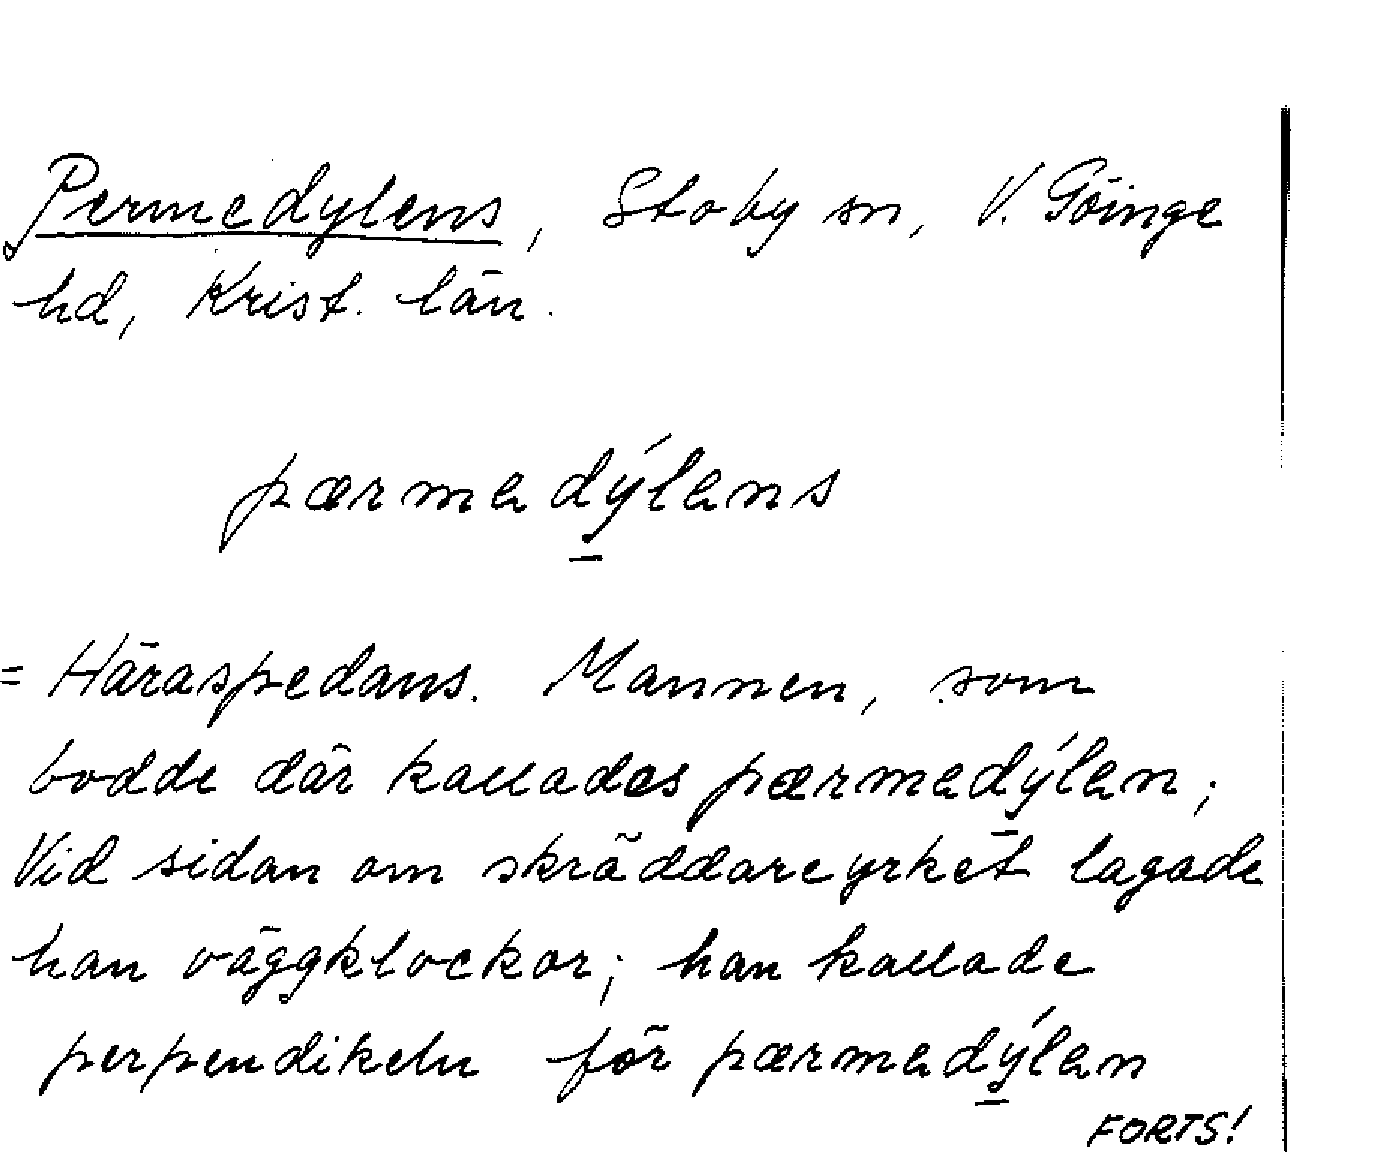 Permedylens, Stoby sn, V. Göinge
hd, Krist. län.
pærmadý̱lans
= Häraspedans. Mannen, som
bodde där kallades pærmadý̱lan;
Vid sidan om skräddareyrket lagade
han väggklockor; han kallade
perpendikeln för pærmadý̱lan
FORTS!